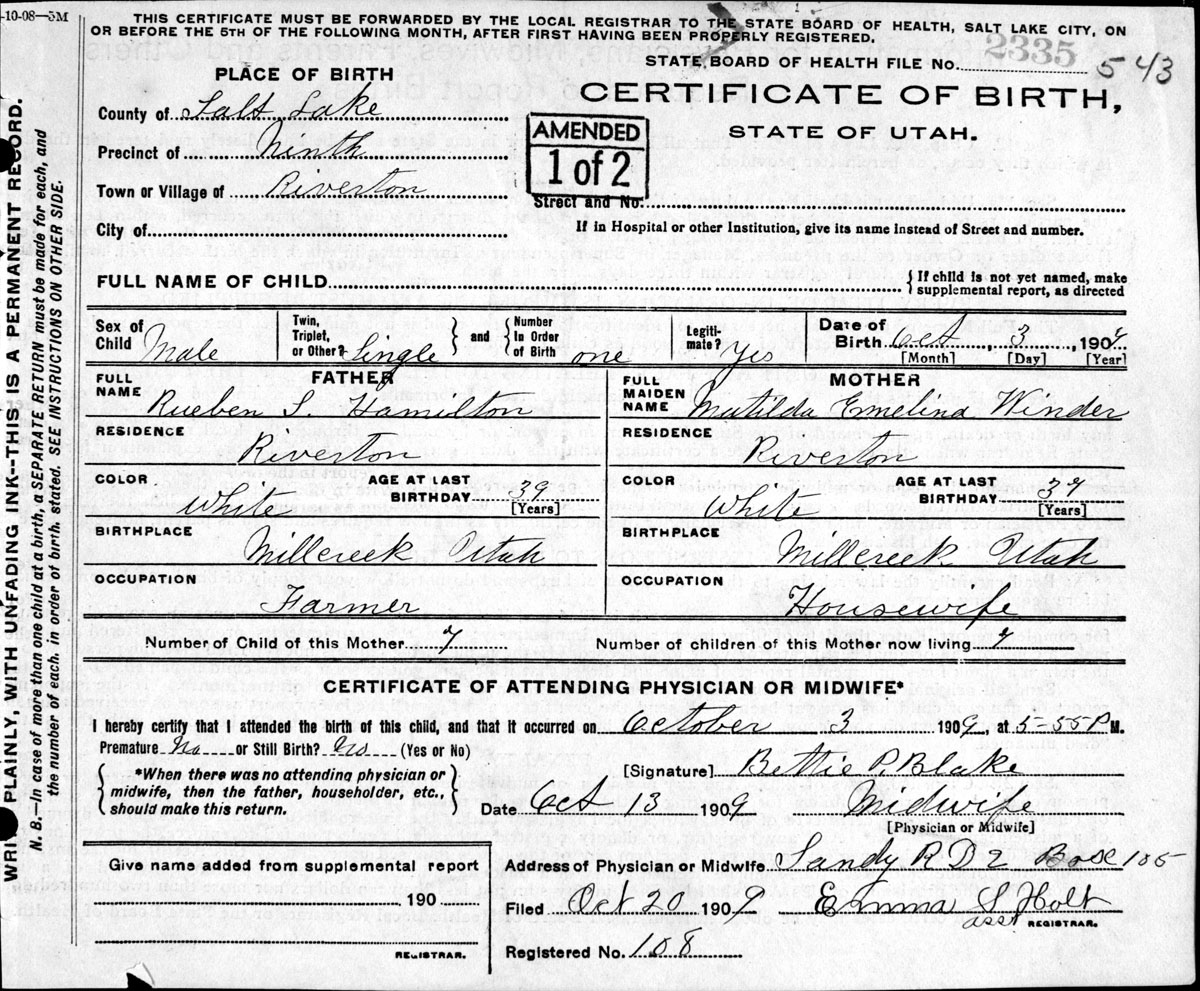 -10-08—5M
THIS CERTIFICATE MUST BE FORWARDED BY THE LOCAL REGISTRAR TO THE STATE BOARD OF HEALTH, SALT LAKE CITY, ON
OR BEFORE THE 5TH OF THE FOLLOWING MONTH, AFTER FIRST HAVING BEEN PROPERLY REGISTERED.
STATE BOARD OF HEALTH FILE No. 2335 543
PLACE OF BIRTH
CERTIFICATE OF BIRTH,
STATE OF UTAH.
County of Salt Lake
AMENDED
1 of 2
Precinct of Ninth
Town or Village of Riverton
Street and No.
City of
If in Hospital or other Institution, give its name Instead of Street and number.
FULL NAME OF CHILD
{ If child is not yet named, make
supplemental report, as directed
Sex of
Child Male
Twin,
Triplet,
or Other? Single } and { Number
In Order
of Birth one
Legiti-
mate? Yes
Date of
Birth Oct, 3, 1909.
[Month] [Day] [Year]
FATHER
FULL
NAME Rueben S. Hamilton
MOTHER
FULL
MAIDEN
NAME Matilda Emelina Winder
RESIDENCE Riverton
RESIDENCE Riverton
COLOR White
AGE AT LAST
BIRTHDAY 39
[Years]
COLOR White
AGE AT LAST
BIRTHDAY
[Years]
BIRTHPLACE Millcreek Utah
BIRTHPLACE Millcreek Utah
OCCUPATION Farmer
OCCUPATION Housewife
Number of Child of this Mother
Number of children of this Mother now living
CERTIFICATE OF ATTENDING PHYSICIAN OR MIDWIFE*
I hereby certify that I attended the birth of this child, and that it occurred on October 3 1909, at 5-55 P M.
Premature No or Still Birth? No (Yes or No)
{ *When there was no attending physician or
midwife, then the father, householder, etc.,
should make this return. }
[Signature] Bettie P. Blake
Date Oct 13 1909 Midwife
[Physician or Midwife]
Give name added from supplemental report
190
REGISTRAR.
Address of Physician or Midwife Sandy R D 2 Box 105
Filed Oct 20 1909 Emma S Holt
asst REGISTRAR.
Registered No. 108
WRITE PLAINLY, WITH UNFADING INK--THIS IS A PERMANENT RECORD.
N. B.—In case of more than one child at a birth, a SEPARATE RETURN must be made for each, and
the number of each. in order of birth. stated. SEE INSTRUCTIONS ON OTHER SIDE.